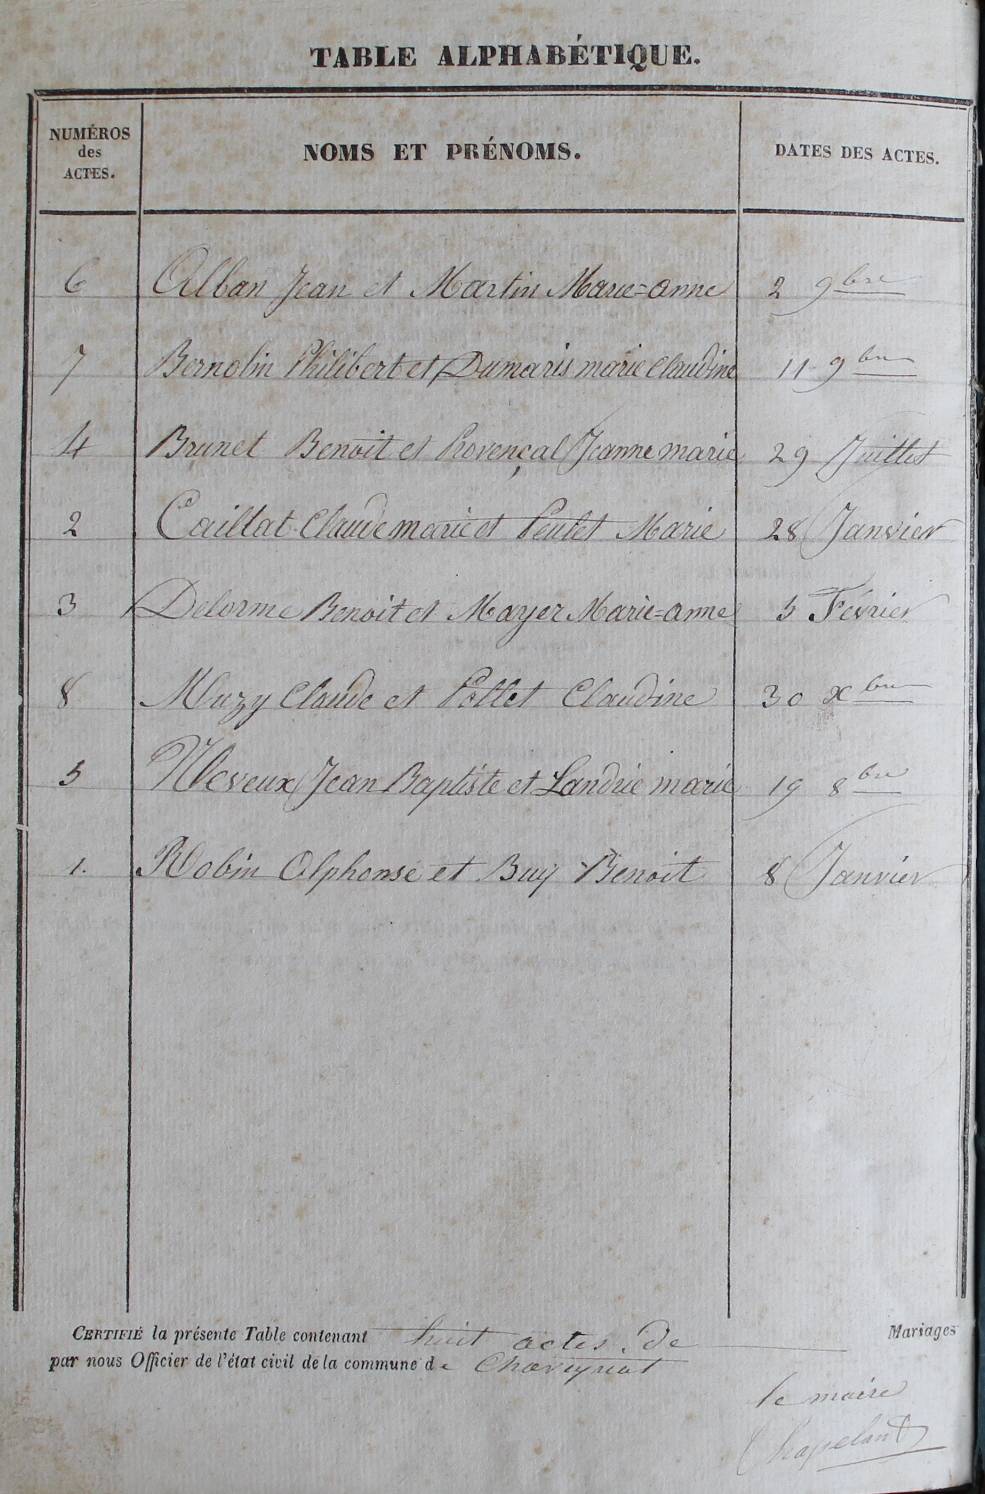 TABLE ALPHABÉTIQUE.
NUMÉROS des ACTES. NOMS ET PRÉNOMS. DATES DES ACTES.
6 Alban Jean et Martin Marie=anne 2 9bre
7 Bernolin Philibert et Dumaris marie Claudine 11 9bre
4 Brunet Benoit et Provençal Jeanne marie 29 Juillet
2 Caillat Claude marie et Peulet Marie 28 Janvier
3 Delorme Benoit et Mayer Marie=anne 5 Février
8 Muzy Claude et Pollet Claudine 30 xbre
5 Neveux Jean Baptiste et Landrie marie 19 8bre
1. Robin Alphonse et Buy Benoit 8 Janvier
CERTIFIÉ la présente Table contenant huit actes de Mariages
par nous Officier de l'état civil de la commune de Chaveyriat
le maire
Chapeland